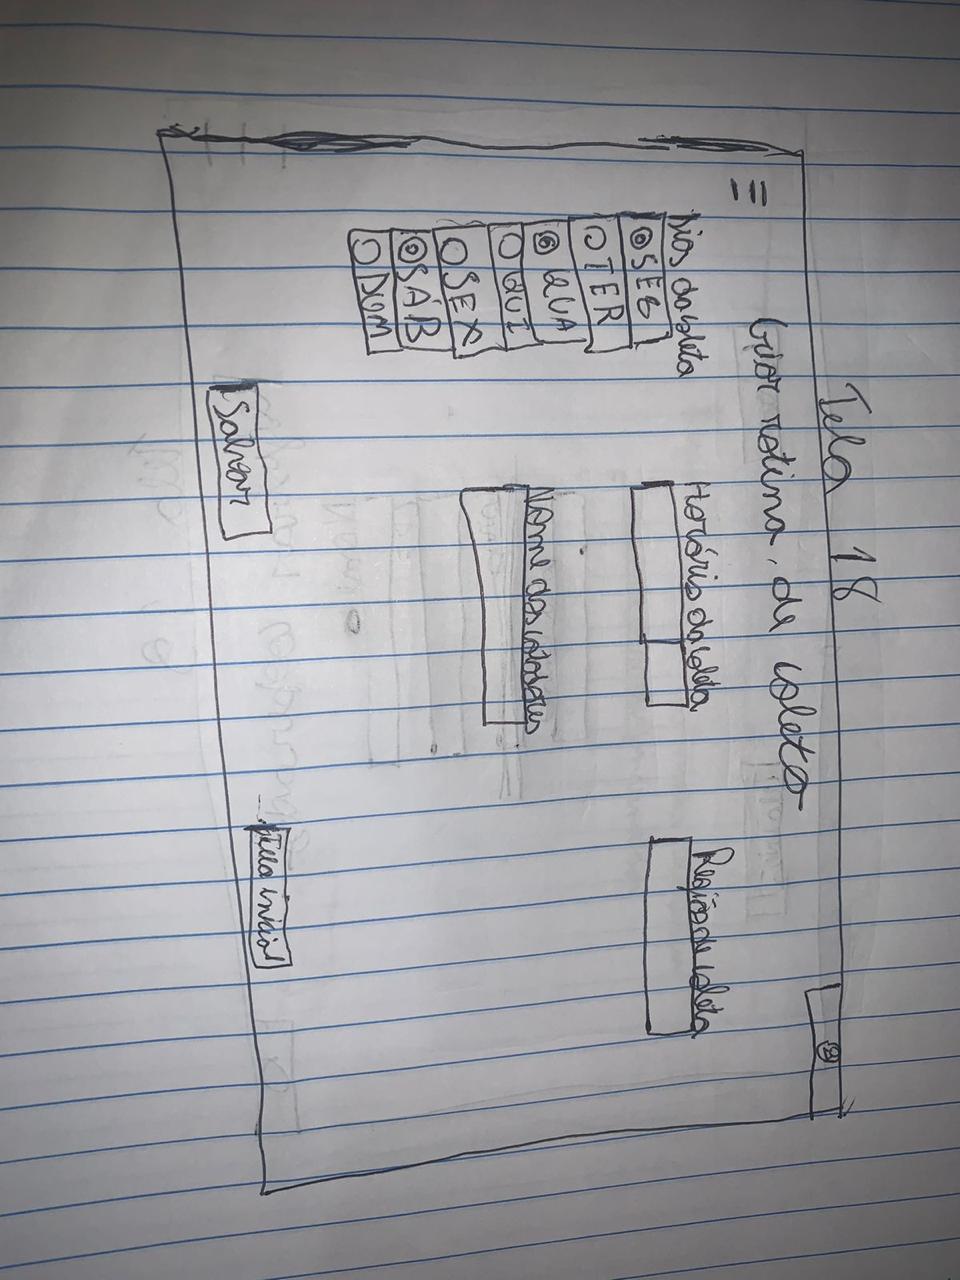 Tela 18
Criar rotina de coleta
Dias da coleta
SEG
TER
QUA
QUI
SEX
SÁB
DOM
Horário da coleta
Nome dos catadores
Região de coleta
Salvar
Tela inicial